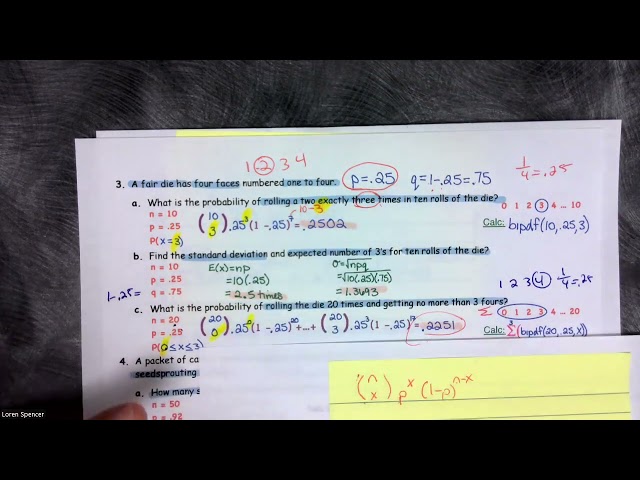 1 2 3 4
3. A fair die has four faces numbered one to four. p=.25 q=1-.25=.75 1/4=.25
a. What is the probability of rolling a two exactly three times in ten rolls of the die? 0 1 2 3 4 ... 10
n = 10
p = .25
P(x=3)
(10 3) .25^3 (1-.25)^7 = .2502
10-3
Calc: bipdf(10,.25,3)
b. Find the standard deviation and expected number of 3's for ten rolls of the die?
n = 10
p = .25
q = .75
1-.25=
E(x)=np
=10(.25)
= 2.5 times
σ=√npq
=√10(.25)(.75)
= 1.3693
1 2 3 4 1/4=.25
c. What is the probability of rolling the die 20 times and getting no more than 3 fours? Σ 0 1 2 3 4 ... 20
n = 20
p = .25
P(0≤x≤3)
(20 0) .25^0 (1-.25)^20 + ... + (20 3) .25^3 (1-.25)^17 = .2251
Calc: Σ^3 (bipdf(20,.25,x))
4. A packet of ca
seedsprouting
a. How many s
n = 50
p = .92
(n x) p^x (1-p)^n-x
Loren Spencer